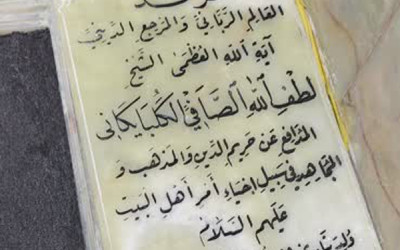 العالم الرباني والمرجع الديني
آية الله العظمى الشيخ
لطف الله الصافي الگلپايگاني
المدافع عن حريم الدين والمذهب و
المجاهد في سبيل إحياء أمر أهل البيت
عليهم السلام